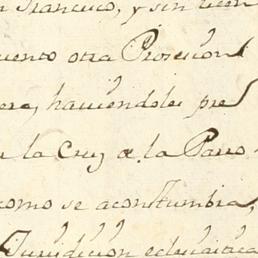 Francisco, y sin licen
otra Procesion
haciendoles pre
la Cruz de la Parro
como se acostumbra,
Jurisdicion eclesiastica